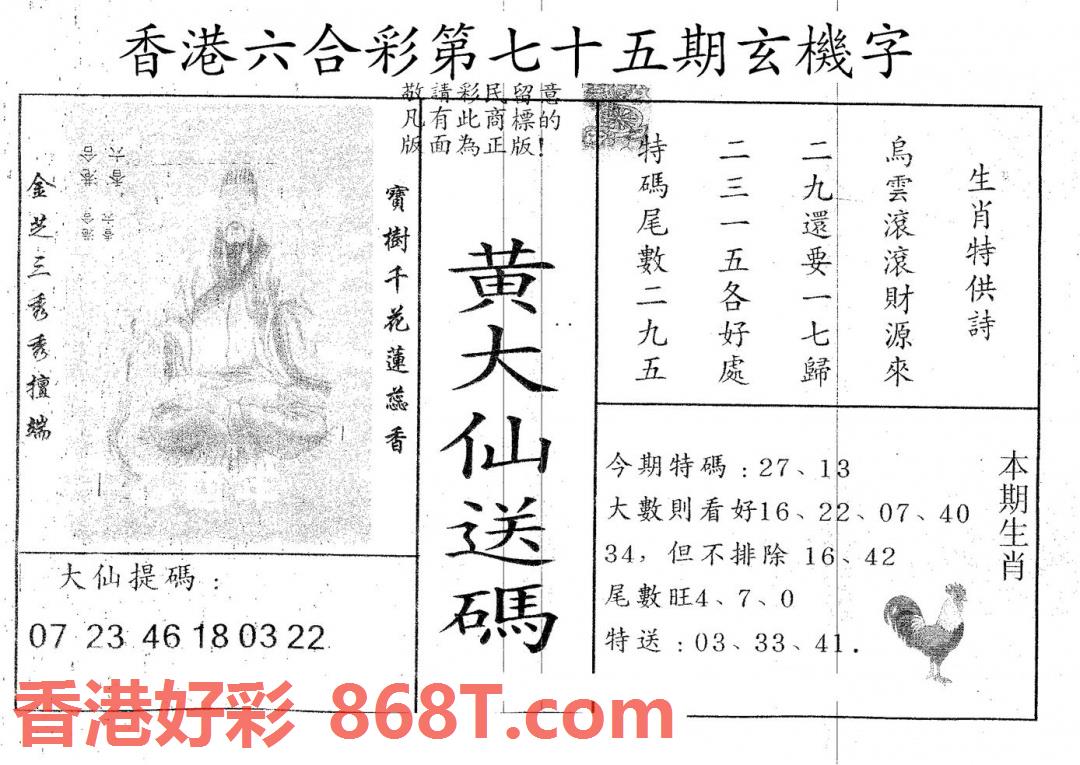 香港六合彩第七十五期玄機字
敬請彩民留意
凡有此商標的
版面為正版！
生肖特供詩
烏雲滾滾財源來
二九還要一七歸
二三一五各好處
特碼尾數二九五
黄大仙送碼
寶樹千花蓮蕊香
金芝三秀秀擅端
香六
港合
香六
港合
大仙提碼：
07 23 46 18 03 22
本期生肖
今期特碼：27、13
大數則看好16、22、07、40
34，但不排除 16、42
尾數旺4、7、0
特送：03、33、41.
香港好彩 868T.com